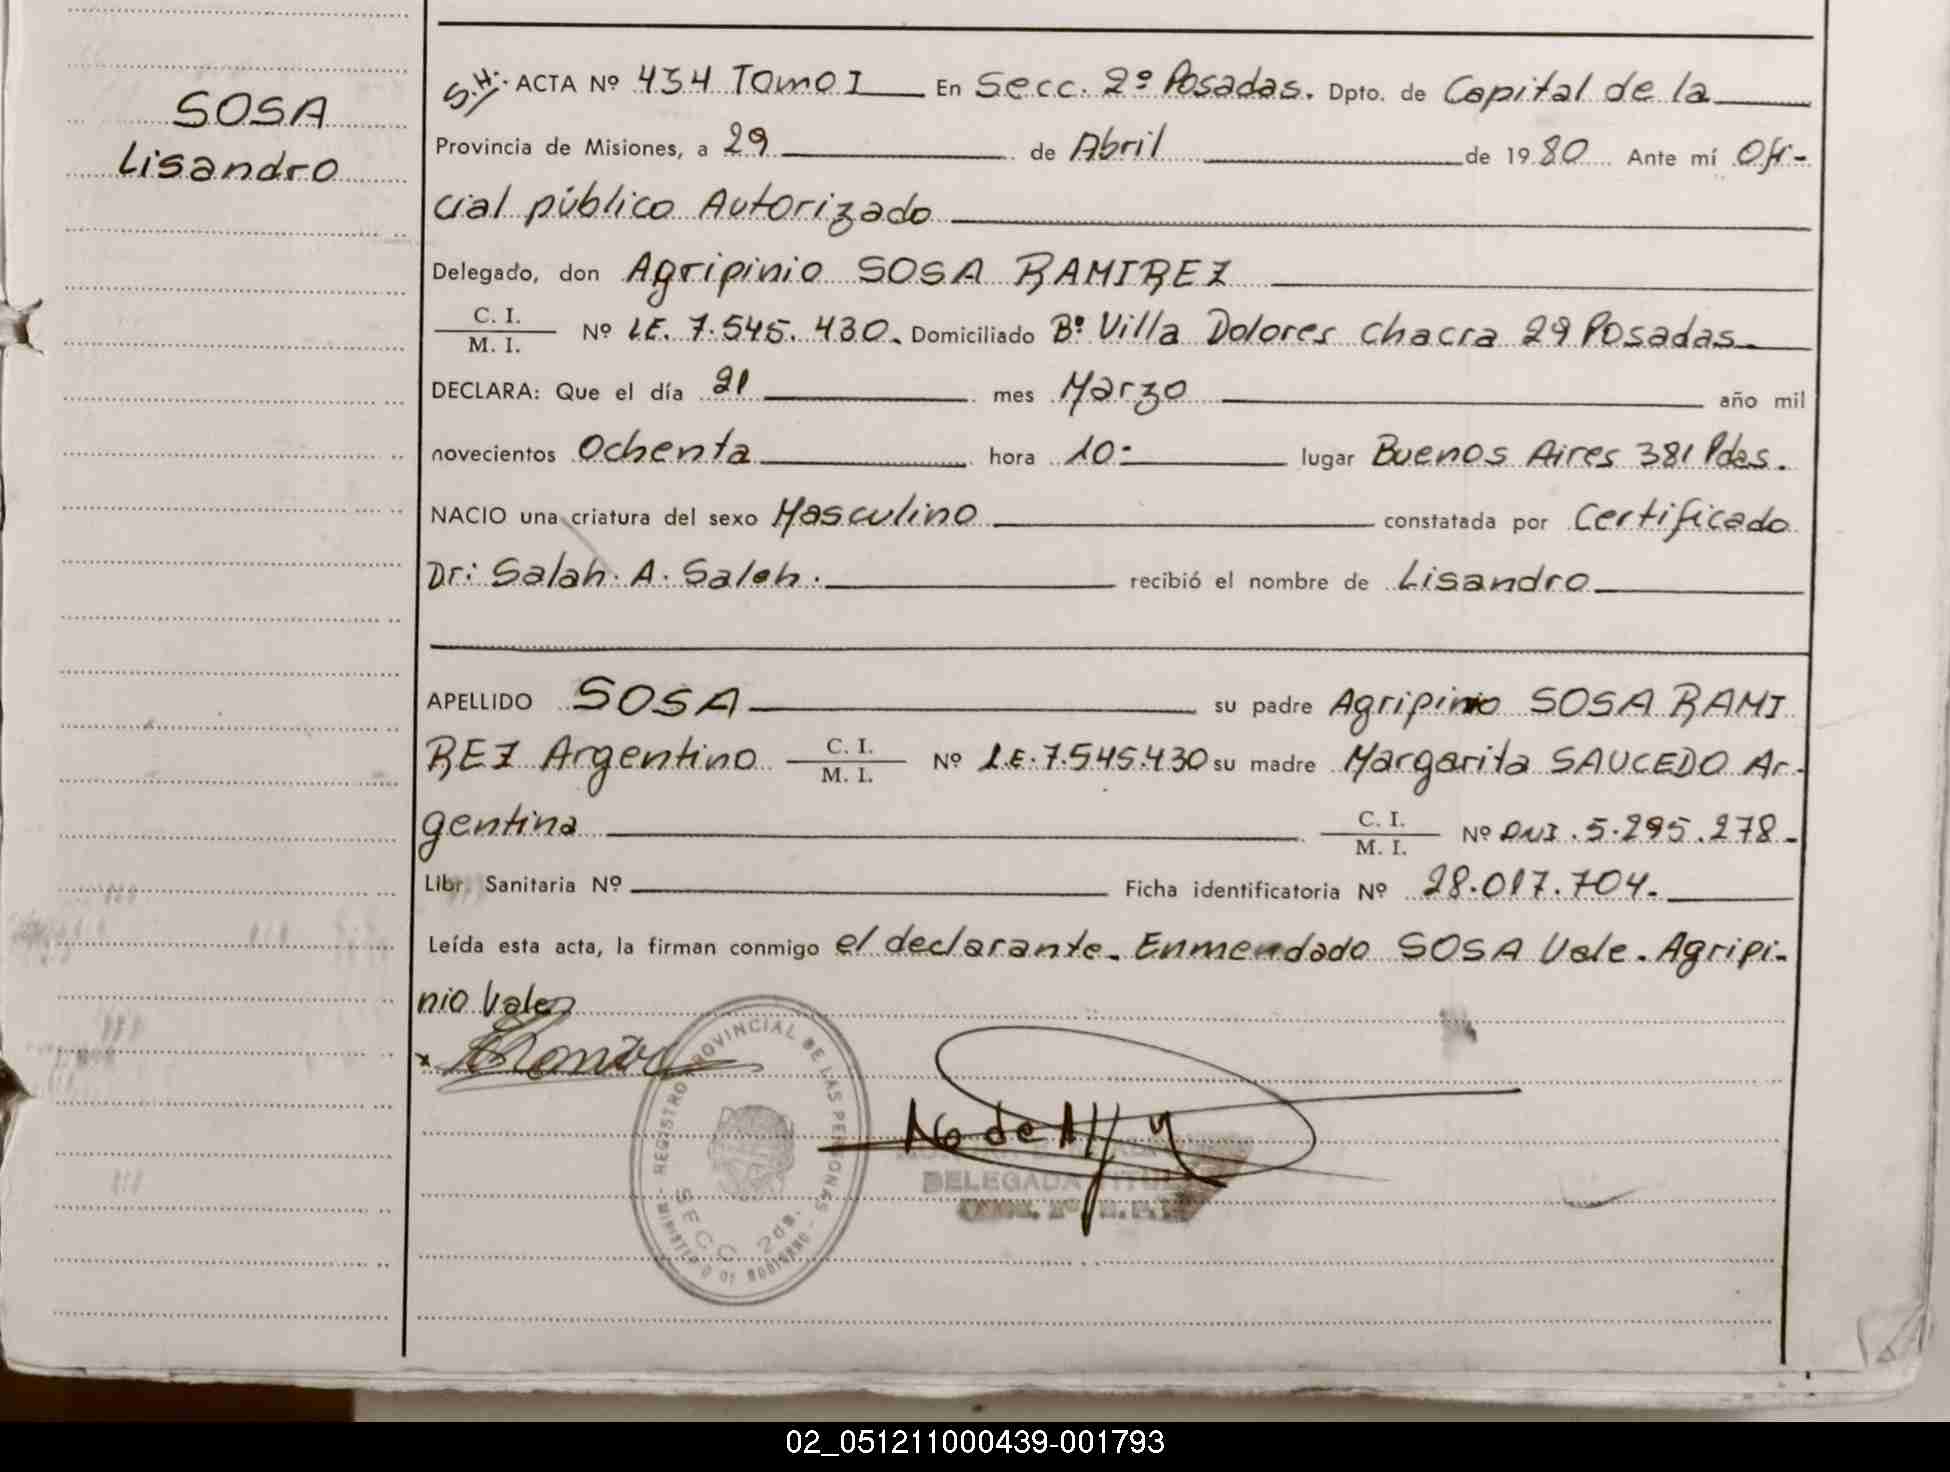 SOSA
Lisandro
S.H. ACTA Nº 434 Tomo I En Secc. 2º Posadas. Dpto. de Capital de la
Provincia de Misiones, a 29 de Abril de 1980 Ante mí Ofi-
cial público Autorizado
Delegado, don Agripinio SOSA RAMIREZ
C. I.
M. I. Nº LE. 7.545.430. Domiciliado Bº Villa Dolores Chacra 29 Posadas.
DECLARA: Que el día 21 mes Marzo año mil
novecientos Ochenta hora 10:- lugar Buenos Aires 381 Pdas.
NACIO una criatura del sexo Masculino constatada por Certificado
Dr: Salah. A. Saleh. recibió el nombre de Lisandro
APELLIDO SOSA su padre Agripinio SOSA RAMI
REZ Argentino C. I. M. I. Nº LE. 7.545.430 su madre Margarita SAUCEDO Ar-
gentina C. I. M. I. Nº DNI. 5.295.278-
Libr. Sanitaria Nº Ficha identificatoria Nº 28.017.704.
Leída esta acta, la firman conmigo el declarante. Enmendado SOSA Vale. Agripi-
nio Vale
REGISTRO PROVINCIAL DE LAS PERSONAS
MINISTERIO DE GOBIERNO
SECC 2da.
DELEGADA TITULAR
02_051211000439-001793